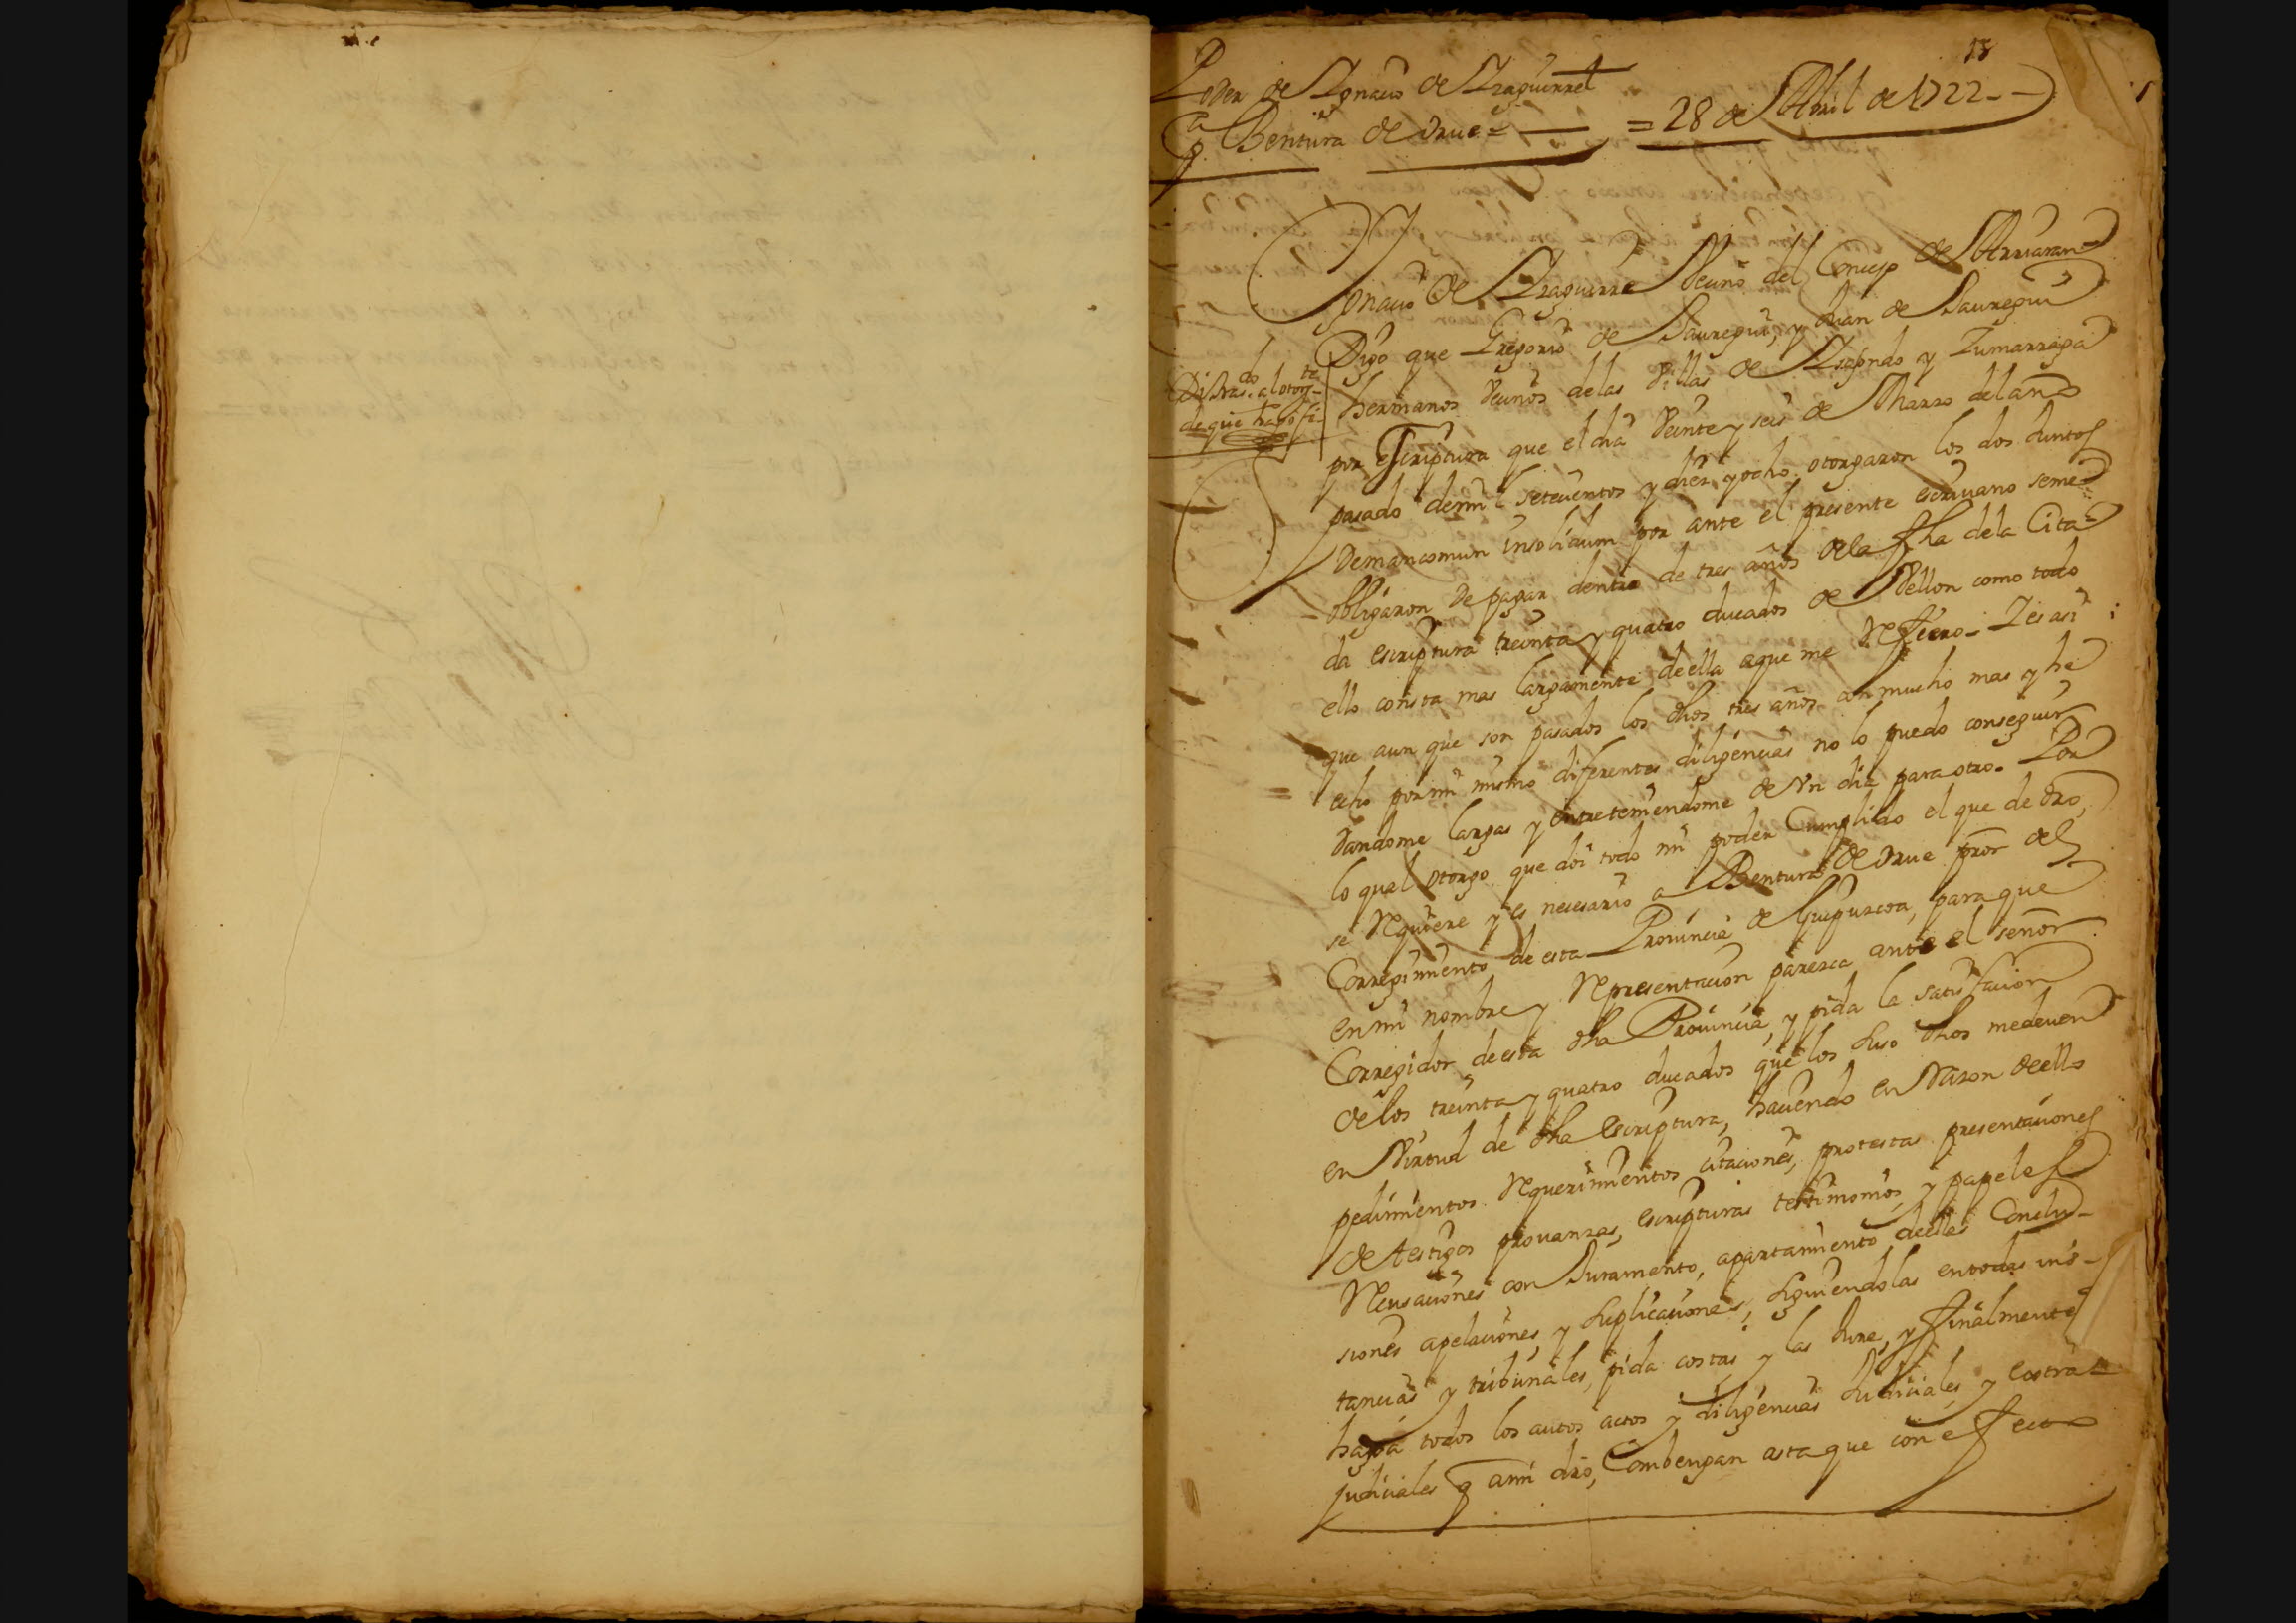 18
Poder de Ygnaçio de Yzaguirre
a Bentura de Vrue = = 28 de Abril de 1722 - -
Ygnaçio de Yzaguirre Veçino del Conçejo de Azcaran
Digo que Gregorio de Jauregui, y Juan de Jauregui
hermanos Veçinos delas Villas de Ysasondo y Zumarraga
Di tras.do al otorg.te
de que hago fe
por escriptura que el dia Veinte y seis de Marzo del año
pasado demil seteçientos y diez yocho, otorgaron los dos Juntos
demancomun insolidum por ante el presente escriuano seme
obligaron de pagar dentro de tres años dela fha dela Cita-
da escriptura treinta y quatro ducados de Vellon como todo
ello consta mas largamente deella aque me Refiero - Y es asi
que aun que son pasados los dhos tres años con mucho mas y he
echo por mi mismo diferentes diligençias no lo puedo conseguir
dandome largas y entreteniendome de Vn dia para otro. Por
lo qual otorgo que doi todo mi poder Cumplido el que de dro,
se Requiere y es neçesario a Bentura de Vrue pror del
Corregimiento de esta Prouinçia de Guipuzcoa, para que
en mi nombre y Representaçion parezca ante el señor
Corregidor deesta dha Prouinçia, y pida la satisfaçion
delos treinta y quatro ducados que los suso dhos medeuen
en Virtud de dha escriptura, haçiendo en Razon deello
pedimientos Requerimientos çitaçiones, protestas presentaçiones
de testigos prouanzas, escripturas testimonios, y papeles
Recusaçiones con Juramento, apartamiento deellas Conclu-
siones apelaçiones, y suplicaçiones, siguiendolas entodas ins-
tançias y tribunales, pida costas, y las Jure, y finalmente
haga todos los autos actos y diligençias Judiçiales, y extra
judiçiales q ami dro, Combengan asta que con efecto